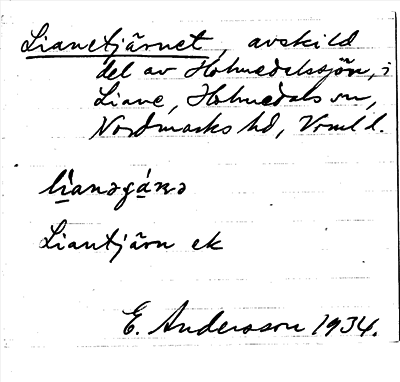 Lianetjärnet, avskild
del av Holmedalssjön, i
Liane, Holmedals sn,
Nordmarks hd, Vrml l.
Liantjärn ek
E. Andersson 1934.